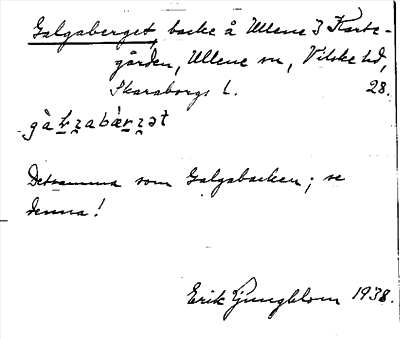 Galgaberget, backe å Ullene 3 Karte-
gården, Ullene sn, Vilske hd,
Skaraborgs l. 28.
Detsamma som Galgabacken; se
denna!
Erik Ljungblom 1938.